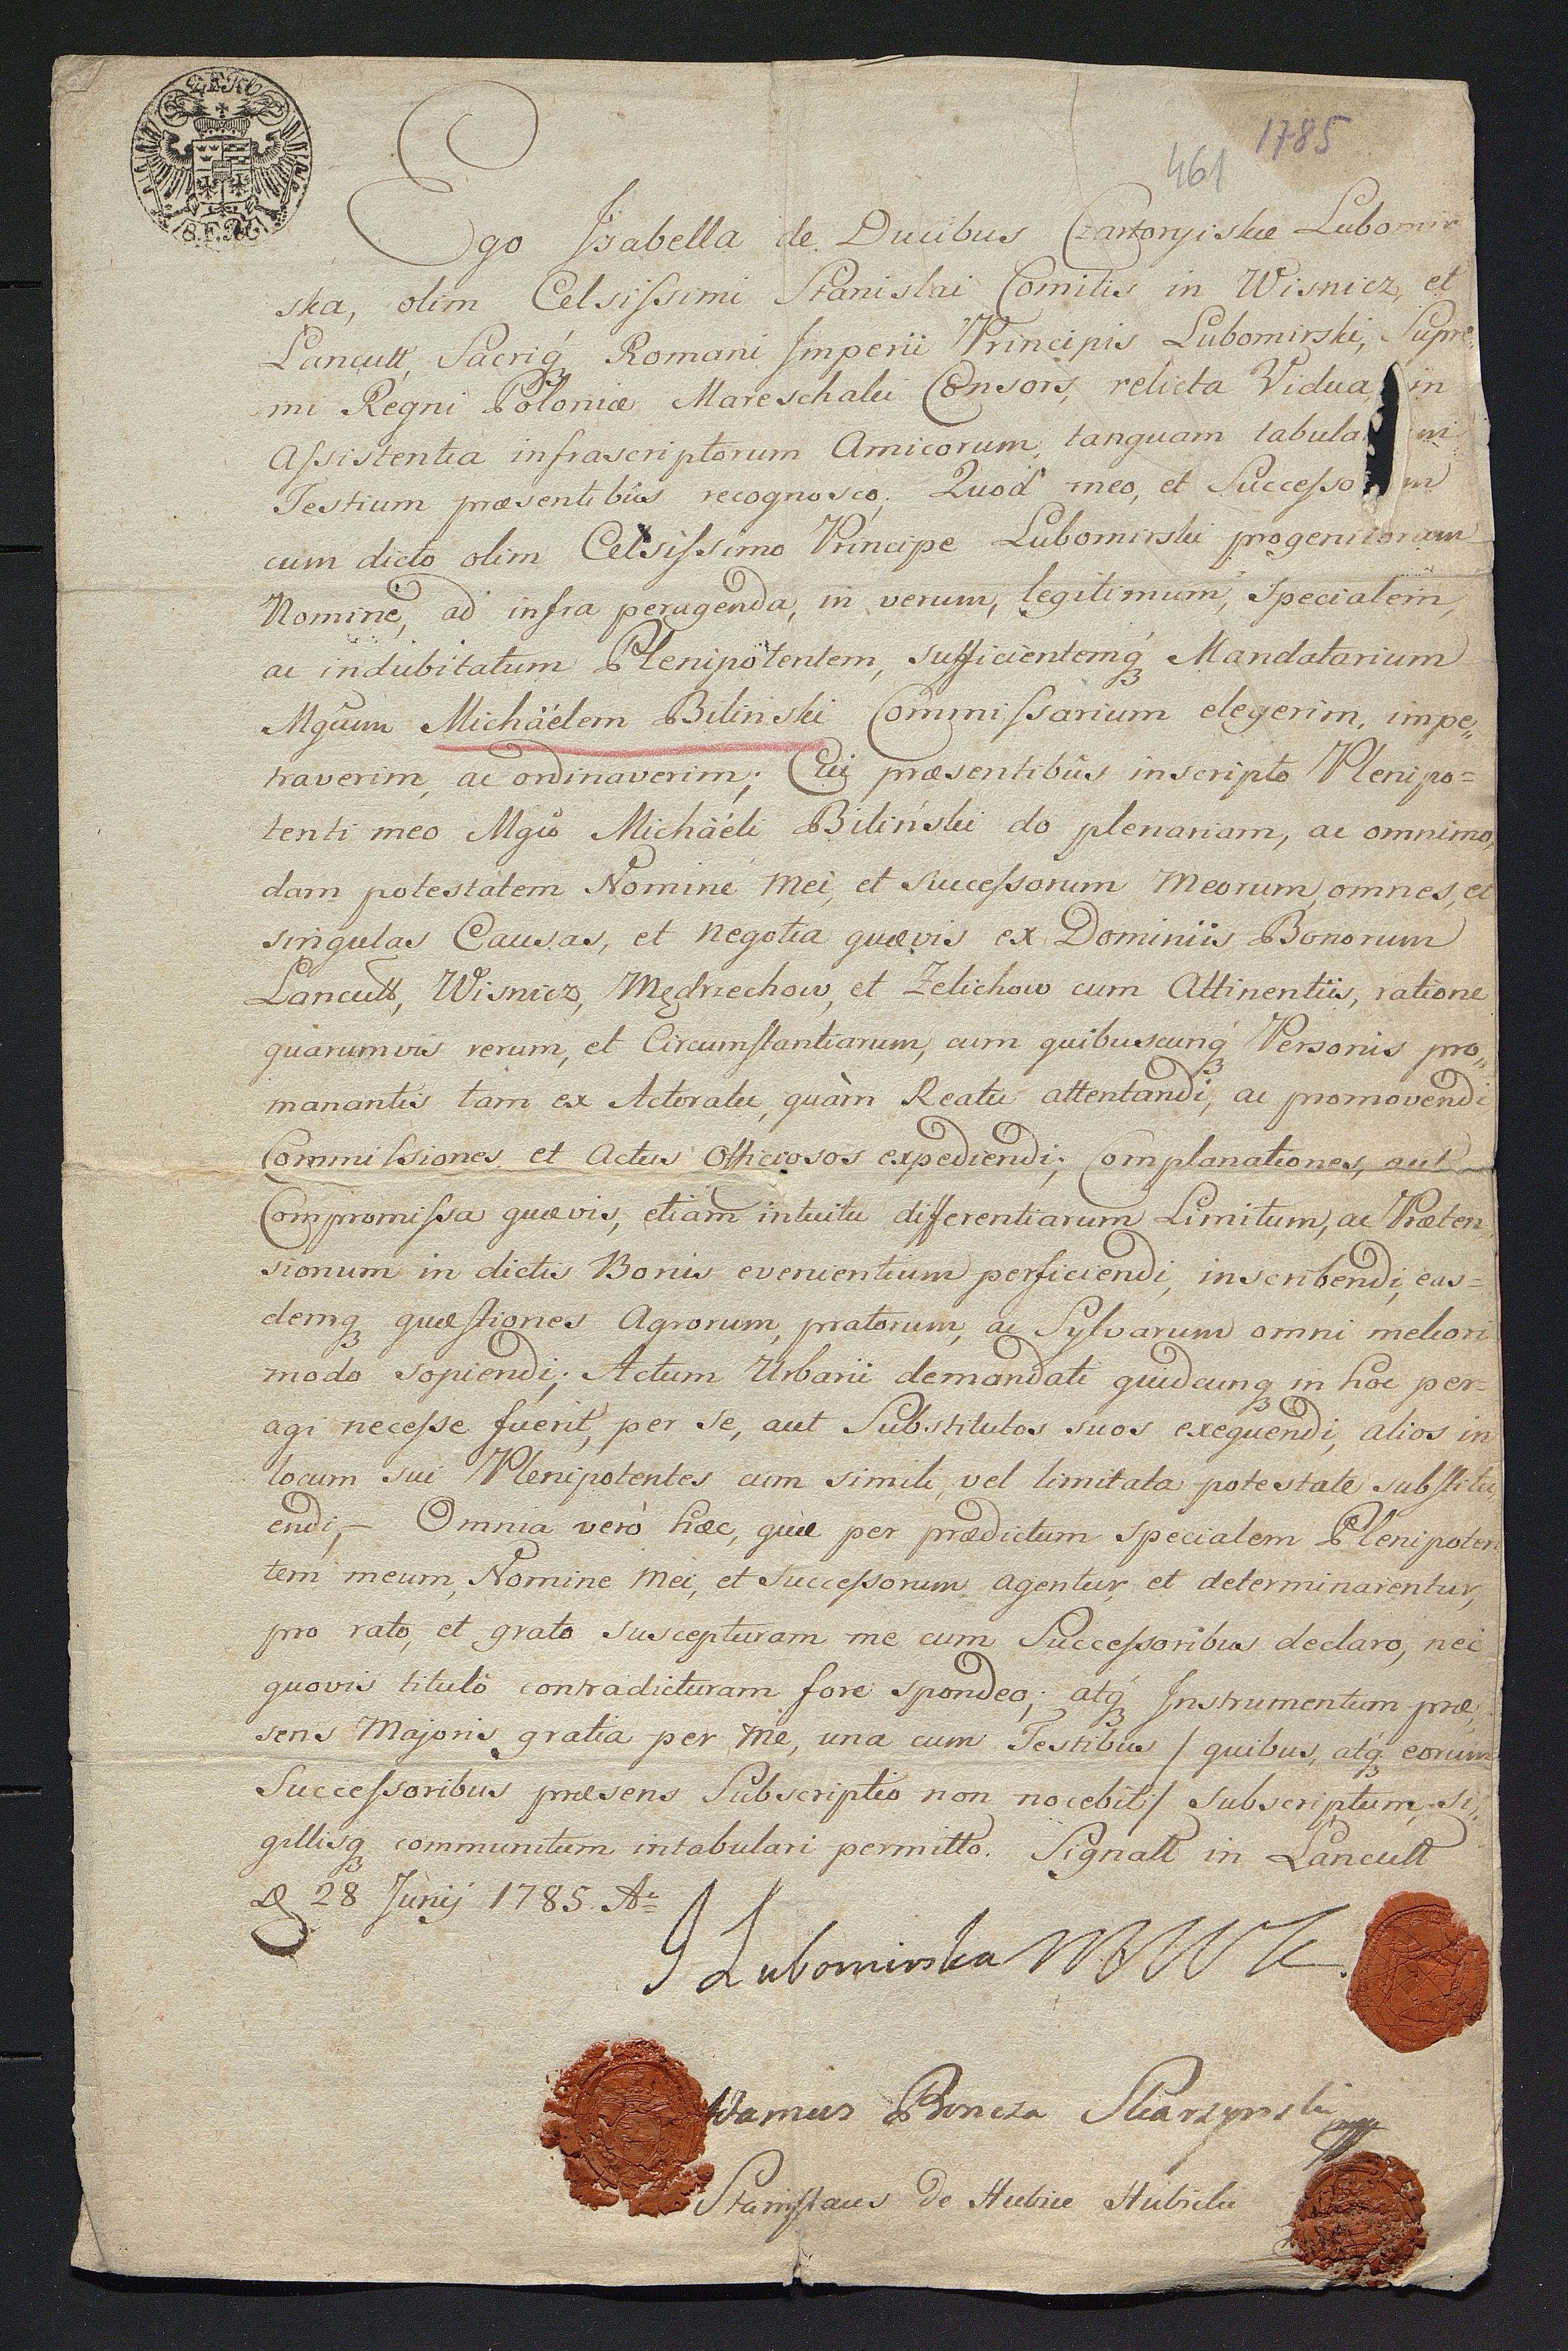 1785
461
Ego Izabella de Ducibus Czartoryiskie Lubomir
ska, olim Celsissimi Stanislai Comitis in Wisnicz, et
Lancutt, Sacriq́ Romani Imperii Principis Lubomirski, Supre„
mi Regni Poloniæ Mareschalci Consors, relicta Vidua, in
Assistentia infrascriptorum Amicorum, tanquam tabula ni
Testium præsentibûs recognosco. Quod meo, et Successo m
cum dicto olim Celsissimo Principe Lubomirski progenitorum
Nominé, ad infra peragenda, in verum, legitimum, specialem,
ac indubitatum Plenipotentem, sufficientemq́ Mandatarium
Mgûum Michäelem Bilinski Commissarium elegerim, impe„
traverim, ac ordinaverim; Cui præsentibûs inscripto Plenipo=
tenti meo Mgûo Michäéli Biliński do plenariam, ac omnimo„
dam potestatem Nominé Mei, et Successorum Meorum, omnes, et
singulas Causas, et negotia quævis ex Dominiis Bonorum
Lancutt, Wisnicz, Mędrzechow, et Zelichow cum Attinentiis, ratione
quarumvis rerum, et Circumstantiarum, cum quibuscunq́ Personis pro„
manantes tam ex Actoratu, quàm Reatu attentandi, ac promovendi
Commissiones et Actus Officiosos expediendi; Complanationes, aut
Compromissa quævis, etiam intuitu differentiarum Limitum, ac Præten
sionum in dictis Bonis evenientium perficiendi, inscribendi, eas=
demq́ quæstiones Agrorum, pratorum, ac Sylvarum omni meliori
modo sopiendi; Actum Urbarii demandati quidcunq́ in hoc per=
agi necesse fuerit, per se, aut Substitutos suos exequendi, alios in
locum sui Plenipotentes cum simili, vel limitata potestate substitu„
endi, – Omnia verò hæc, quæ per prædictum specialem Plenipoten
tem meum, Nomine Mei, et Successorum agentur, et determinarentur,
pro rato, et grato suscepturam me cum Successoribus declaro, nec
quovis titulò contradicturam fore spondeo; atq́ Instrumentum præ„
sens Majoris gratia per Me, una cum Testibus / quibus, atq́ eorum
Successoribus præsens Subscriptio non nocebit / subscriptum, si„
gillisq́ communitum intabulari permitto. Signatt in Lancutt
D 28 Junij 1785. Aº
I Lubomirska MWK.
Adamus Boncza Skarzynski
Stanislaus de Hubice Hubicki